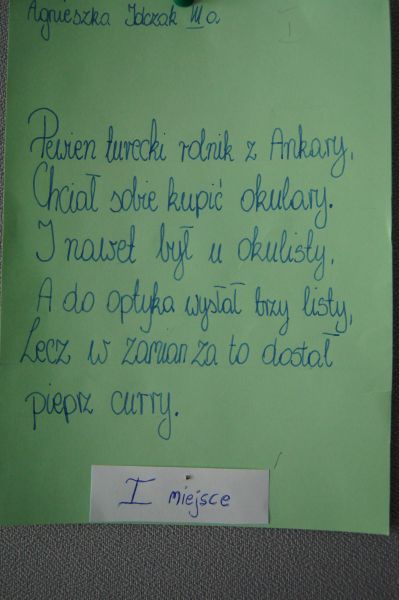 Agnieszka Idczak III a
I
Pewien turecki rolnik z Ankary,
Chciał sobie kupić okulary.
I nawet był u okulisty,
A do optyka wysłał trzy listy,
Lecz w zamian za to dostał
pieprz curry.
I miejsce